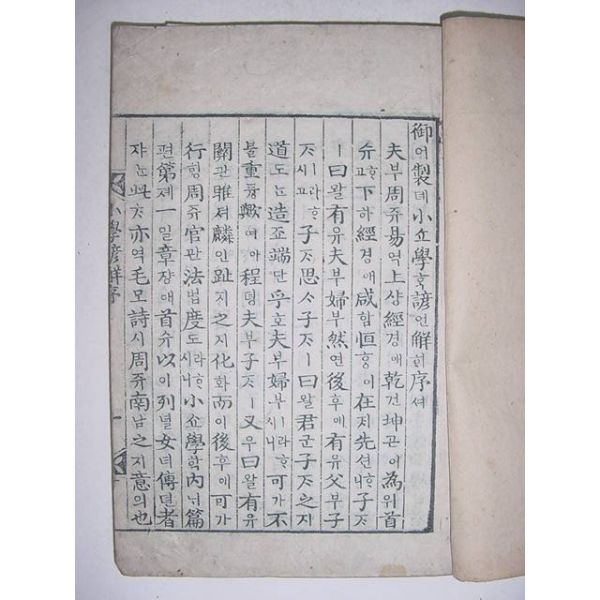 御어製뎨小쇼學ᄒᆞᆨ諺언解ᄒᆡ序셔
夫부周쥬易역上샹經경애乾건坤곤이為위首
슈ᄒᆞ고下하經경애咸함恒ᄒᆞᆼ이在ᄌᆡ先션ᄒᆞ니子ᄌᆞ
ㅣ曰왈有유夫부婦부然연後후에有유父부子
ᄌᆞㅣ라ᄒᆞ시고子ᄌᆞ思ᄉᆞ子ᄌᆞㅣ曰왈君군子ᄌᆞ之지
道도ᄂᆞᆫ造조端단乎호夫부婦부ㅣ라ᄒᆞ시니可가不
블重듕歟여아程뎡夫부子ᄌᆞㅣ又우曰왈有유
關관雎져麟인趾지之지化화而이後후에可가
行ᄒᆡᆼ周쥬官관法법度도ㅣ라ᄒᆞ시니小쇼學ᄒᆞᆨ內ᄂᆡ篇
편第뎨一일章쟝애首슈以이列녈女녀傳뎐者
쟈ᄂᆞᆫ此ᄎᆞ亦역毛모詩시周쥬南남之지意의也
小學諺解序 一